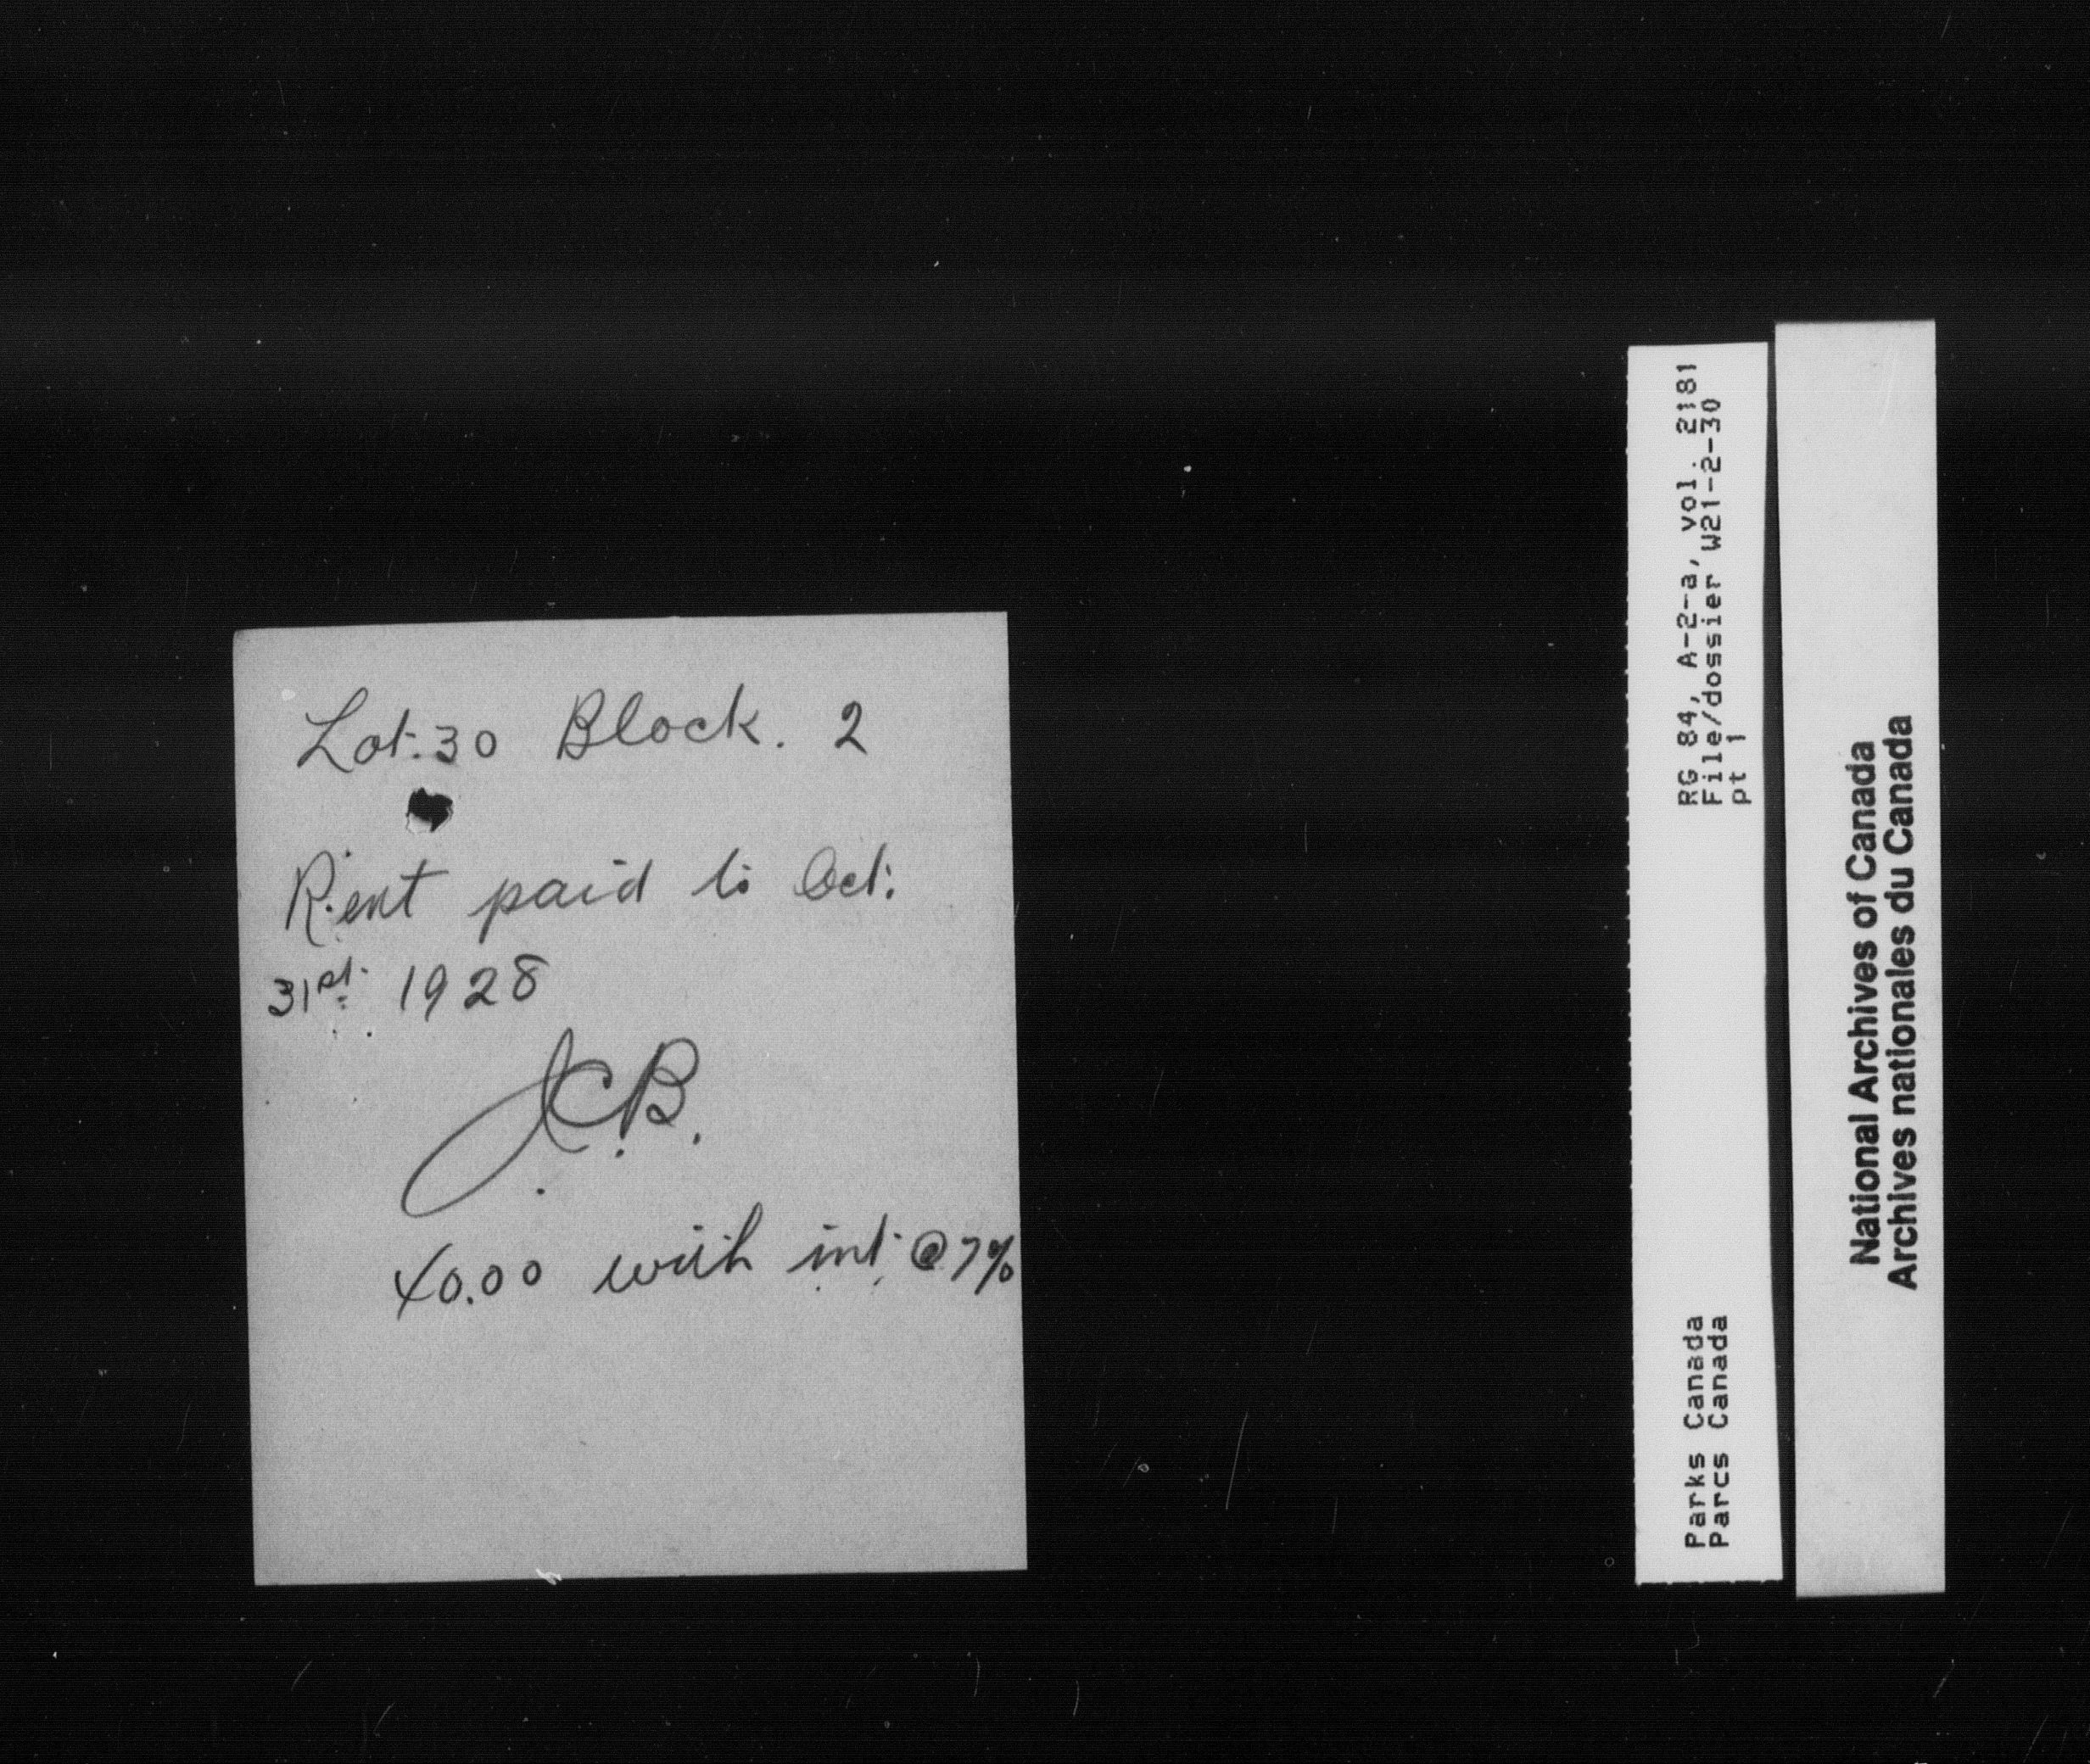 Lot. 30 Block. 2
Rent paid to Oct.
31st. 1928
J.C.B.
40.00 with int. @ 7%
RG 84, A-2-a, vol. 2181
File/dossier W21-2-30
pt 1
Parks Canada
Parcs Canada
National Archives of Canada
Archives nationales du Canada